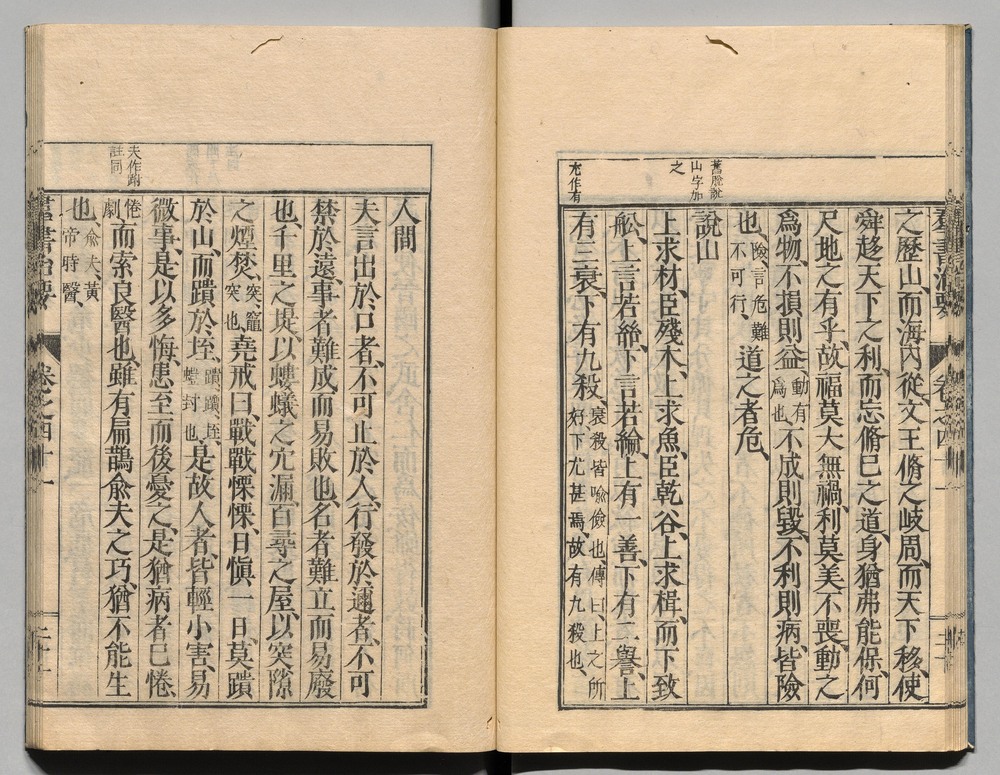 羣書治要 卷之四十一
之歷山、而海內從、文王脩之岐周、而天下移、使
舜趍天下之利、而忘脩己之道、身猶弗能保、何
尺地之有乎、故福莫大無禍、利莫美不喪、動之
爲物、不損則益、動有爲也、不成則毀、不利則病、皆險
也、險、言危難不可行、道之者危、
舊脫說
山字加
之
說山
上求材、臣殘木、上求魚、臣乾谷、上求楫、而下致
舩、上言若絲、下言若綸、上有一善、下有二譽、上
尤作有
有三衰、下有九殺、衰殺皆喻儉也、傳曰、上之所好下尤甚焉、故有九殺也、
人間
夫言出於口者、不可止於人、行發於邇者、不可
禁於遠、事者難成而易敗也、名者難立而易廢
也、千里之堤、以螻蟻之穴漏、百尋之屋、以突隙
之煙焚、突、竈突也、堯戒曰、戰戰慄慄、日愼一日、莫蹪
於山、而蹪於垤、蹪、躓、垤、蟻封也、是故人者、皆輕小害、易
微事、是以多悔、患至而後憂之、是猶病者已惓、
夫作跗
註同
惓劇而索良醫也、雖有扁鵲兪夫之巧、猶不能生
也、兪夫、黃帝時醫、
羣書治要 卷之四十一 二十一